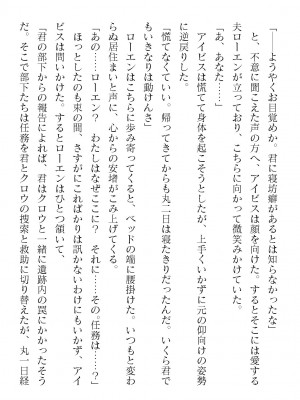 「――ようやくお目覚めか。君に寝坊癖があるとは知らなかったな」
と、不意に聞こえた声の方へ、アイビスは顔を向けた。するとそこには愛する
夫ローエンが立っており、こちらに向かって微笑みかけていた。
「あ、あなた……っ」
アイビスは慌てて身体を起こそうとしたが、上手くいかずに元の仰向けの姿勢
に逆戻りした。
「慌てなくていい。帰ってきてからも丸二日は寝たきりだったんだ。いくら君で
もいきなりは動けんさ」
ローエンはこちらに歩み寄ってくると、ベッドの端に腰掛けた。いつもと変わ
らぬ居住まいと声に、心からの安堵がこみ上げてくる。
「あの……ローエン？　わたしはなぜここに？　それに……その。任務は……？」
ほっとしたのも束の間、さすがにこればかりは訊かないわけにもいかず、アイ
ビスは問いかけた。するとローエンはひとつ頷いて、
「君の部下からの報告によれば、君はクロウと一緒に遺跡内の罠にかかったそう
だ。そこで部下たちは任務を君とクロウの捜索と救助に切り替えたが、丸一日経